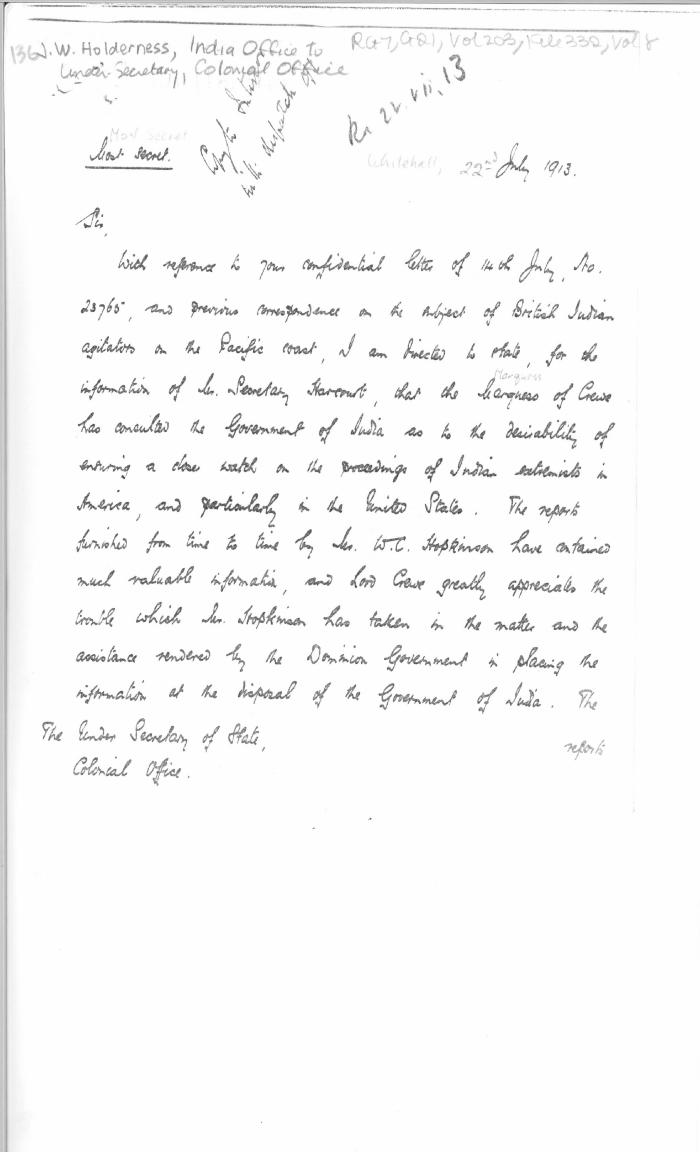 136 J. W. Holderness, India Office to
Under-Secretary, Colonial Office
RG7, G21, Vol 203, File 332, Vol 8
Most secret
Most secret.
Whitehall, 22nd July 1913.
Sir,
With reference to your confidential letter of 14th July, No.
23765, and previous correspondence on the subject of British Indian
agitators on the Pacific coast, I am directed to state, for the
Marquess
information of Mr. Secretary Harcourt, that the Marquess of Crewe
has consulted the Government of India as to the desirability of
ensuring a close watch on the proceedings of Indian extremists in
America, and particularly in the United States. The reports
furnished from time to time by Mr. W.C. Hopkinson have contained
much valuable information, and Lord Crewe greatly appreciates the
trouble which Mr. Hopkinson has taken in the matter and the
assistance rendered by the Dominion Government in placing the
information at the disposal of the Government of India. The
The Under Secretary of State,
reports
Colonial Office.